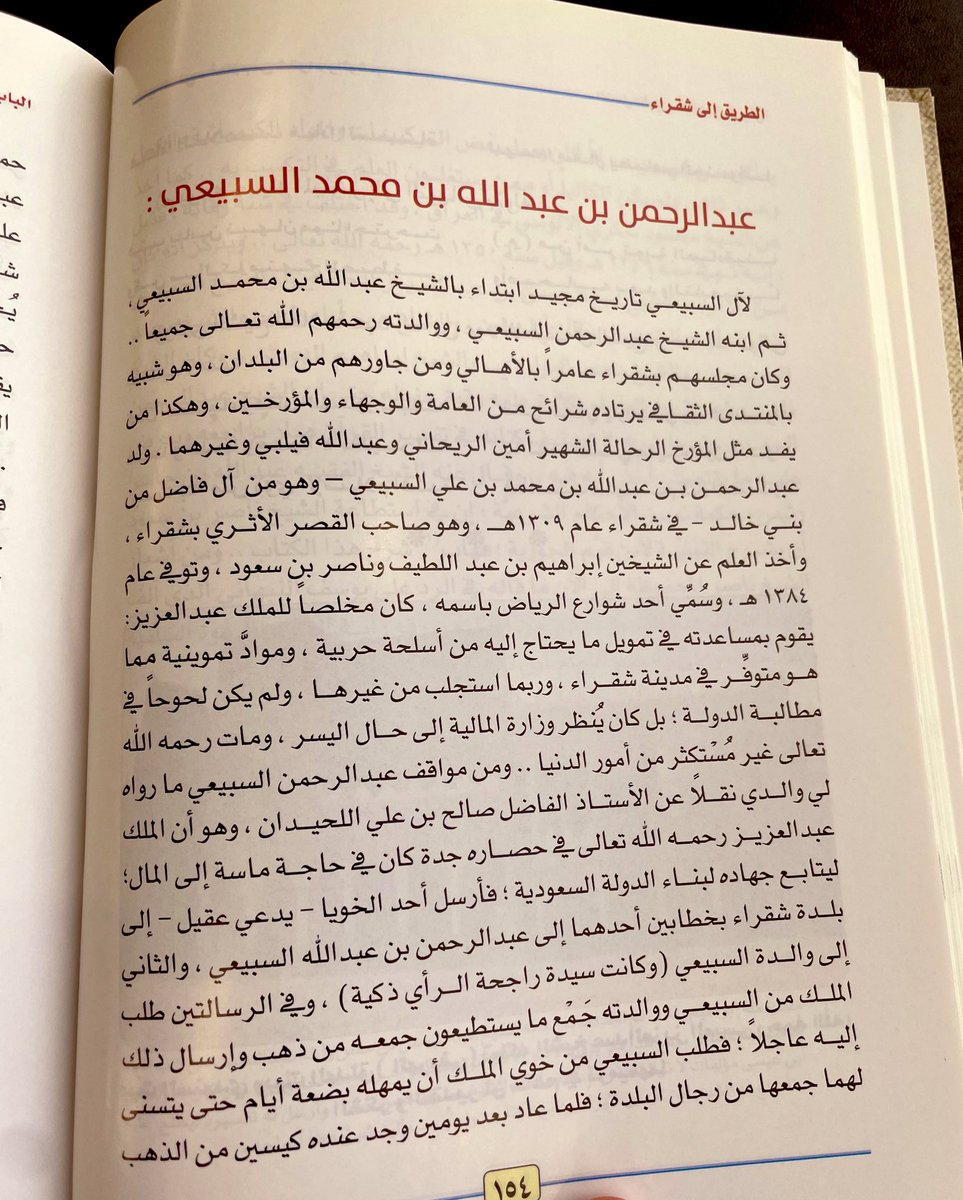 الطريق إلى شقراء
عبدالرحمن بن عبد الله بن محمد السبيعي :
لآل السبيعي تاريخ مجيد ابتداء بالشيخ عبدالله بن محمد السبيعي ،
ثم ابنه الشيخ عبدالرحمن السبيعي ، ووالدته رحمهم الله تعالى جميعاً ..
وكان مجلسهم بشقراء عامراً بالأهالي ومن جاورهم من البلدان ، وهو شبيه
بالمنتدى الثقافي يرتاده شرائح من العامة والوجهاء والمؤرخين ، وهكذا من
يفد مثل المؤرخ الرحالة الشهير أمين الريحاني وعبدالله فيلبي وغيرهما . ولد
عبدالرحمن بن عبدالله بن محمد بن علي السبيعي – وهو من آل فاضل من
بني خالد – في شقراء عام ١٣٠٩هـ ، وهو صاحب القصر الأثري بشقراء ،
وأخذ العلم عن الشيخين إبراهيم بن عبد اللطيف وناصر بن سعود ، وتوفي عام
١٣٨٤ هـ ، وسُمِّي أحد شوارع الرياض باسمه ، كان مخلصاً للملك عبدالعزيز:
يقوم بمساعدته في تمويل ما يحتاج إليه من أسلحة حربية ، وموادَّ تموينية مما
هو متوفِّر في مدينة شقراء ، وربما استجلب من غيرها ، ولم يكن لحوحاً في
مطالبة الدولة ؛ بل كان يُنظر وزارة المالية إلى حال اليسر ، ومات رحمه الله
تعالى غير مُسْتكثر من أمور الدنيا .. ومن مواقف عبدالرحمن السبيعي ما رواه
لي والدي نقلاً عن الأستاذ الفاضل صالح بن علي اللحيدان ، وهو أن الملك
عبدالعزيز رحمه الله تعالى في حصاره جدة كان في حاجة ماسة إلى المال؛
ليتابع جهاده لبناء الدولة السعودية ؛ فأرسل أحد الخويا – يدعي عقيل – إلى
بلدة شقراء بخطابين أحدهما إلى عبدالرحمن بن عبدالله السبيعي ، والثاني
إلى والدة السبيعي (وكانت سيدة راجحة الرأي ذكية) ، وفي الرسالتين طلب
الملك من السبيعي ووالدته جَمْع ما يستطيعون جمعه من ذهب وإرسال ذلك
إليه عاجلاً ؛ فطلب السبيعي من خوي الملك أن يمهله بضعة أيام حتى يتسنى
لهما جمعها من رجال البلدة ؛ فلما عاد بعد يومين وجد عنده كيسين من الذهب
١٥٤